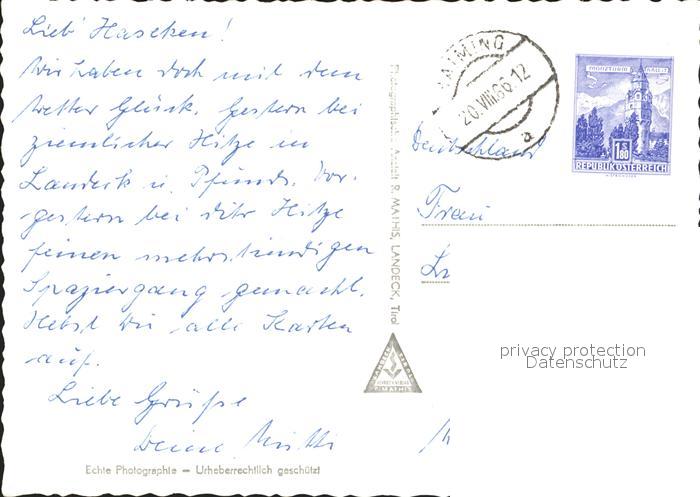 Lieb' Haseken!
Wir haben doch mit dem
Wetter Glück. Gestern bei
ziemlicher Hitze in
Landeck u. Pfunds. Vor-
gestern bei dito Hitze
feinen mehrstündigen
Spaziergang gemacht.
Hebst Du alle Karten
auf.
Liebe Grüße
Deine Mutti
Echte Photographie – Urheberrechtlich geschützt
R. MATHIS, LANDECK, Tirol
HAIMING
20.VIII.66.12
a
MÜNZTURM HALL I. T.
S 1.80
REPUBLIK ÖSTERREICH
Deutschland
Frau
privacy protection
Datenschutz